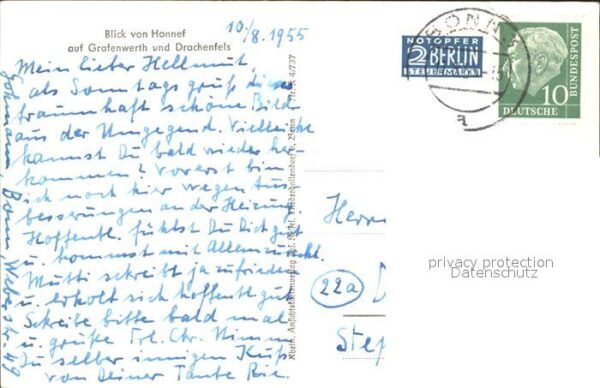 Blick von Honnef
auf Grafenwerth und Drachenfels
10/8. 1955
Mein lieber Hellmut,
als Sonntagsgruß diese
traumhaft schöne Bild
aus der Umgegend. Vielleicht
kannst Du bald wieder her-
kommen? Vorerst bin
ich noch hier wegen Aus
besserungen an der Heizung
Hoffentl. fühlst Du Dich gut
u. kommst mit Allem zurecht.
Mutti schreibt ja zufrieden
u. erholt sich hoffentl. gut
Schreibe bitte bald mal
u. grüße Frl. Chr. Nimm
Du selber innigen Kuß
von Deiner Tante Rie.
Bonn, Weberstr. 49
Rhein. Ansichtskartenverlag
4/737
NOTOPFER
2 BERLIN
STEUERMARKE
BONN
10
DEUTSCHE
BUNDESPOST
Herrn
22a D
Step
privacy protection
Datenschutz